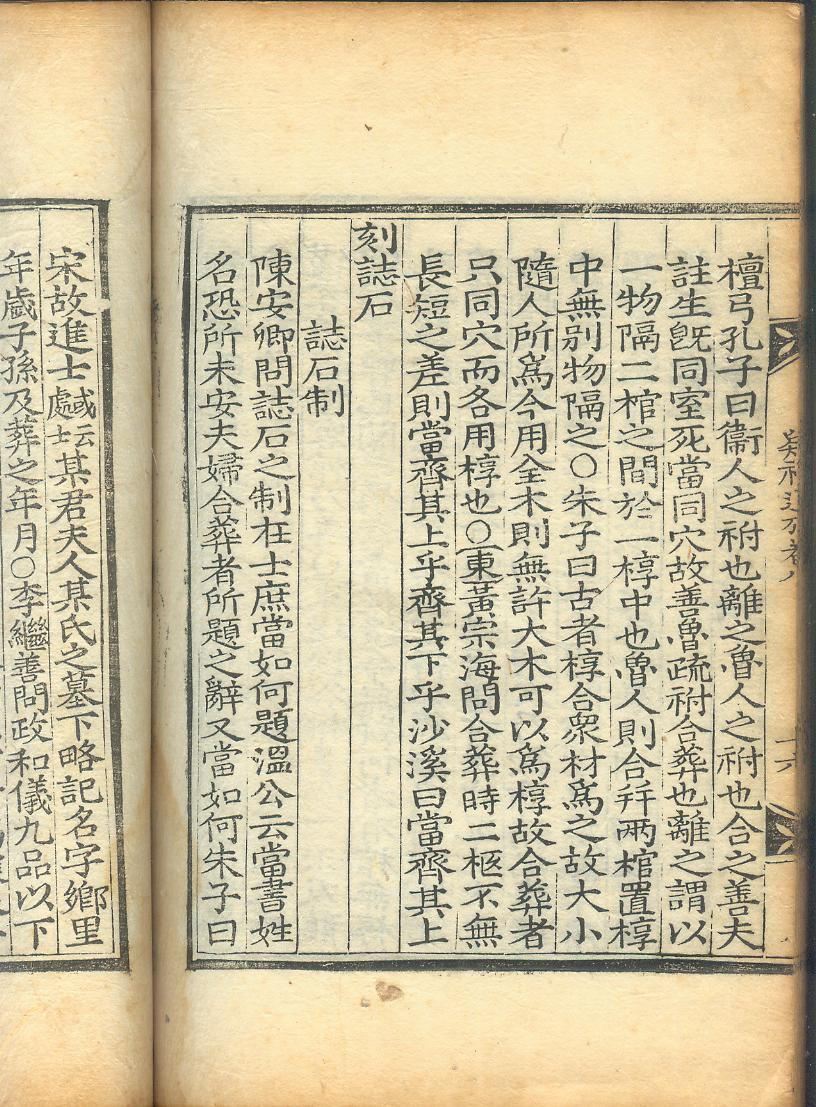 檀弓孔子曰衞人之祔也離之魯人之祔也合之善夫
註生旣同室死當同穴故善魯疏祔合葬也離之謂以
一物隔二棺之間於一椁中也魯人則合幷兩棺置椁
中無别物隔之○朱子曰古者椁合衆材爲之故大小
隨人所爲今用全木則無許大木可以爲椁故合葬者
只同穴而各用椁也○東黃宗海問合葬時二柩不無
長短之差則當齊其上乎齊其下乎沙溪曰當齊其上
刻誌石
誌石制
陳安卿問誌石之制在士庶當如何題溫公云當書姓
名恐所未安夫婦合葬者所題之辭又當如何朱子曰
宋故進士或云處士某君夫人某氏之墓下略記名字鄉里
年歲子孫及葬之年月○李繼善問政和儀九品以下